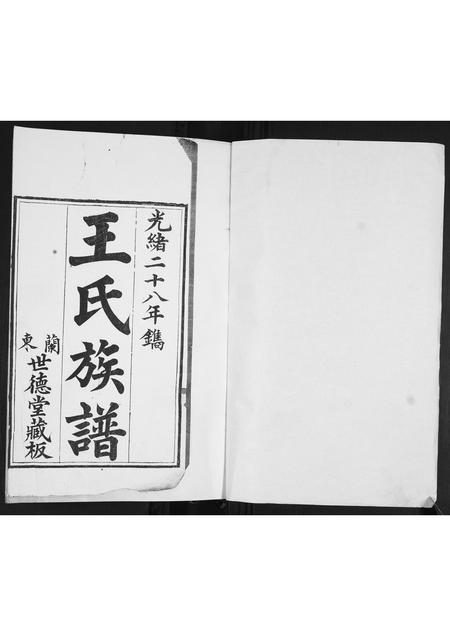 光緒二十八年鐫
王氏族譜
蘭東世德堂藏板